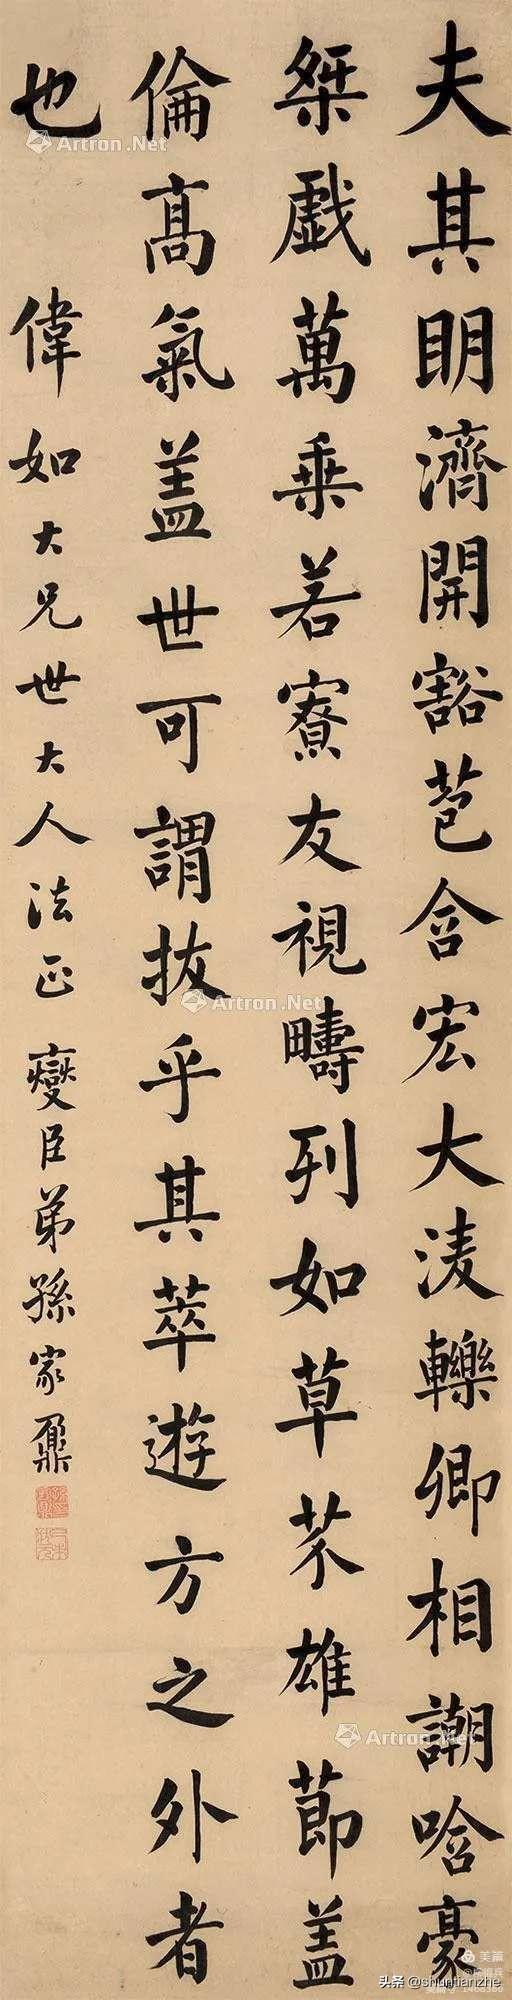 夫其眀濟開豁苞含宏大淩轢卿相謿唅豪
桀戲萬乗若寮友視疇列如草芥雄節盖
倫髙氣盖世可謂拔乎其萃遊方之外者
也 偉如大兄世大人法正 燮臣弟孫家鼐
Artron.Net
Artron.Net
Artron.Net
Artron.Net
美篇
头条 @shuntianzhe